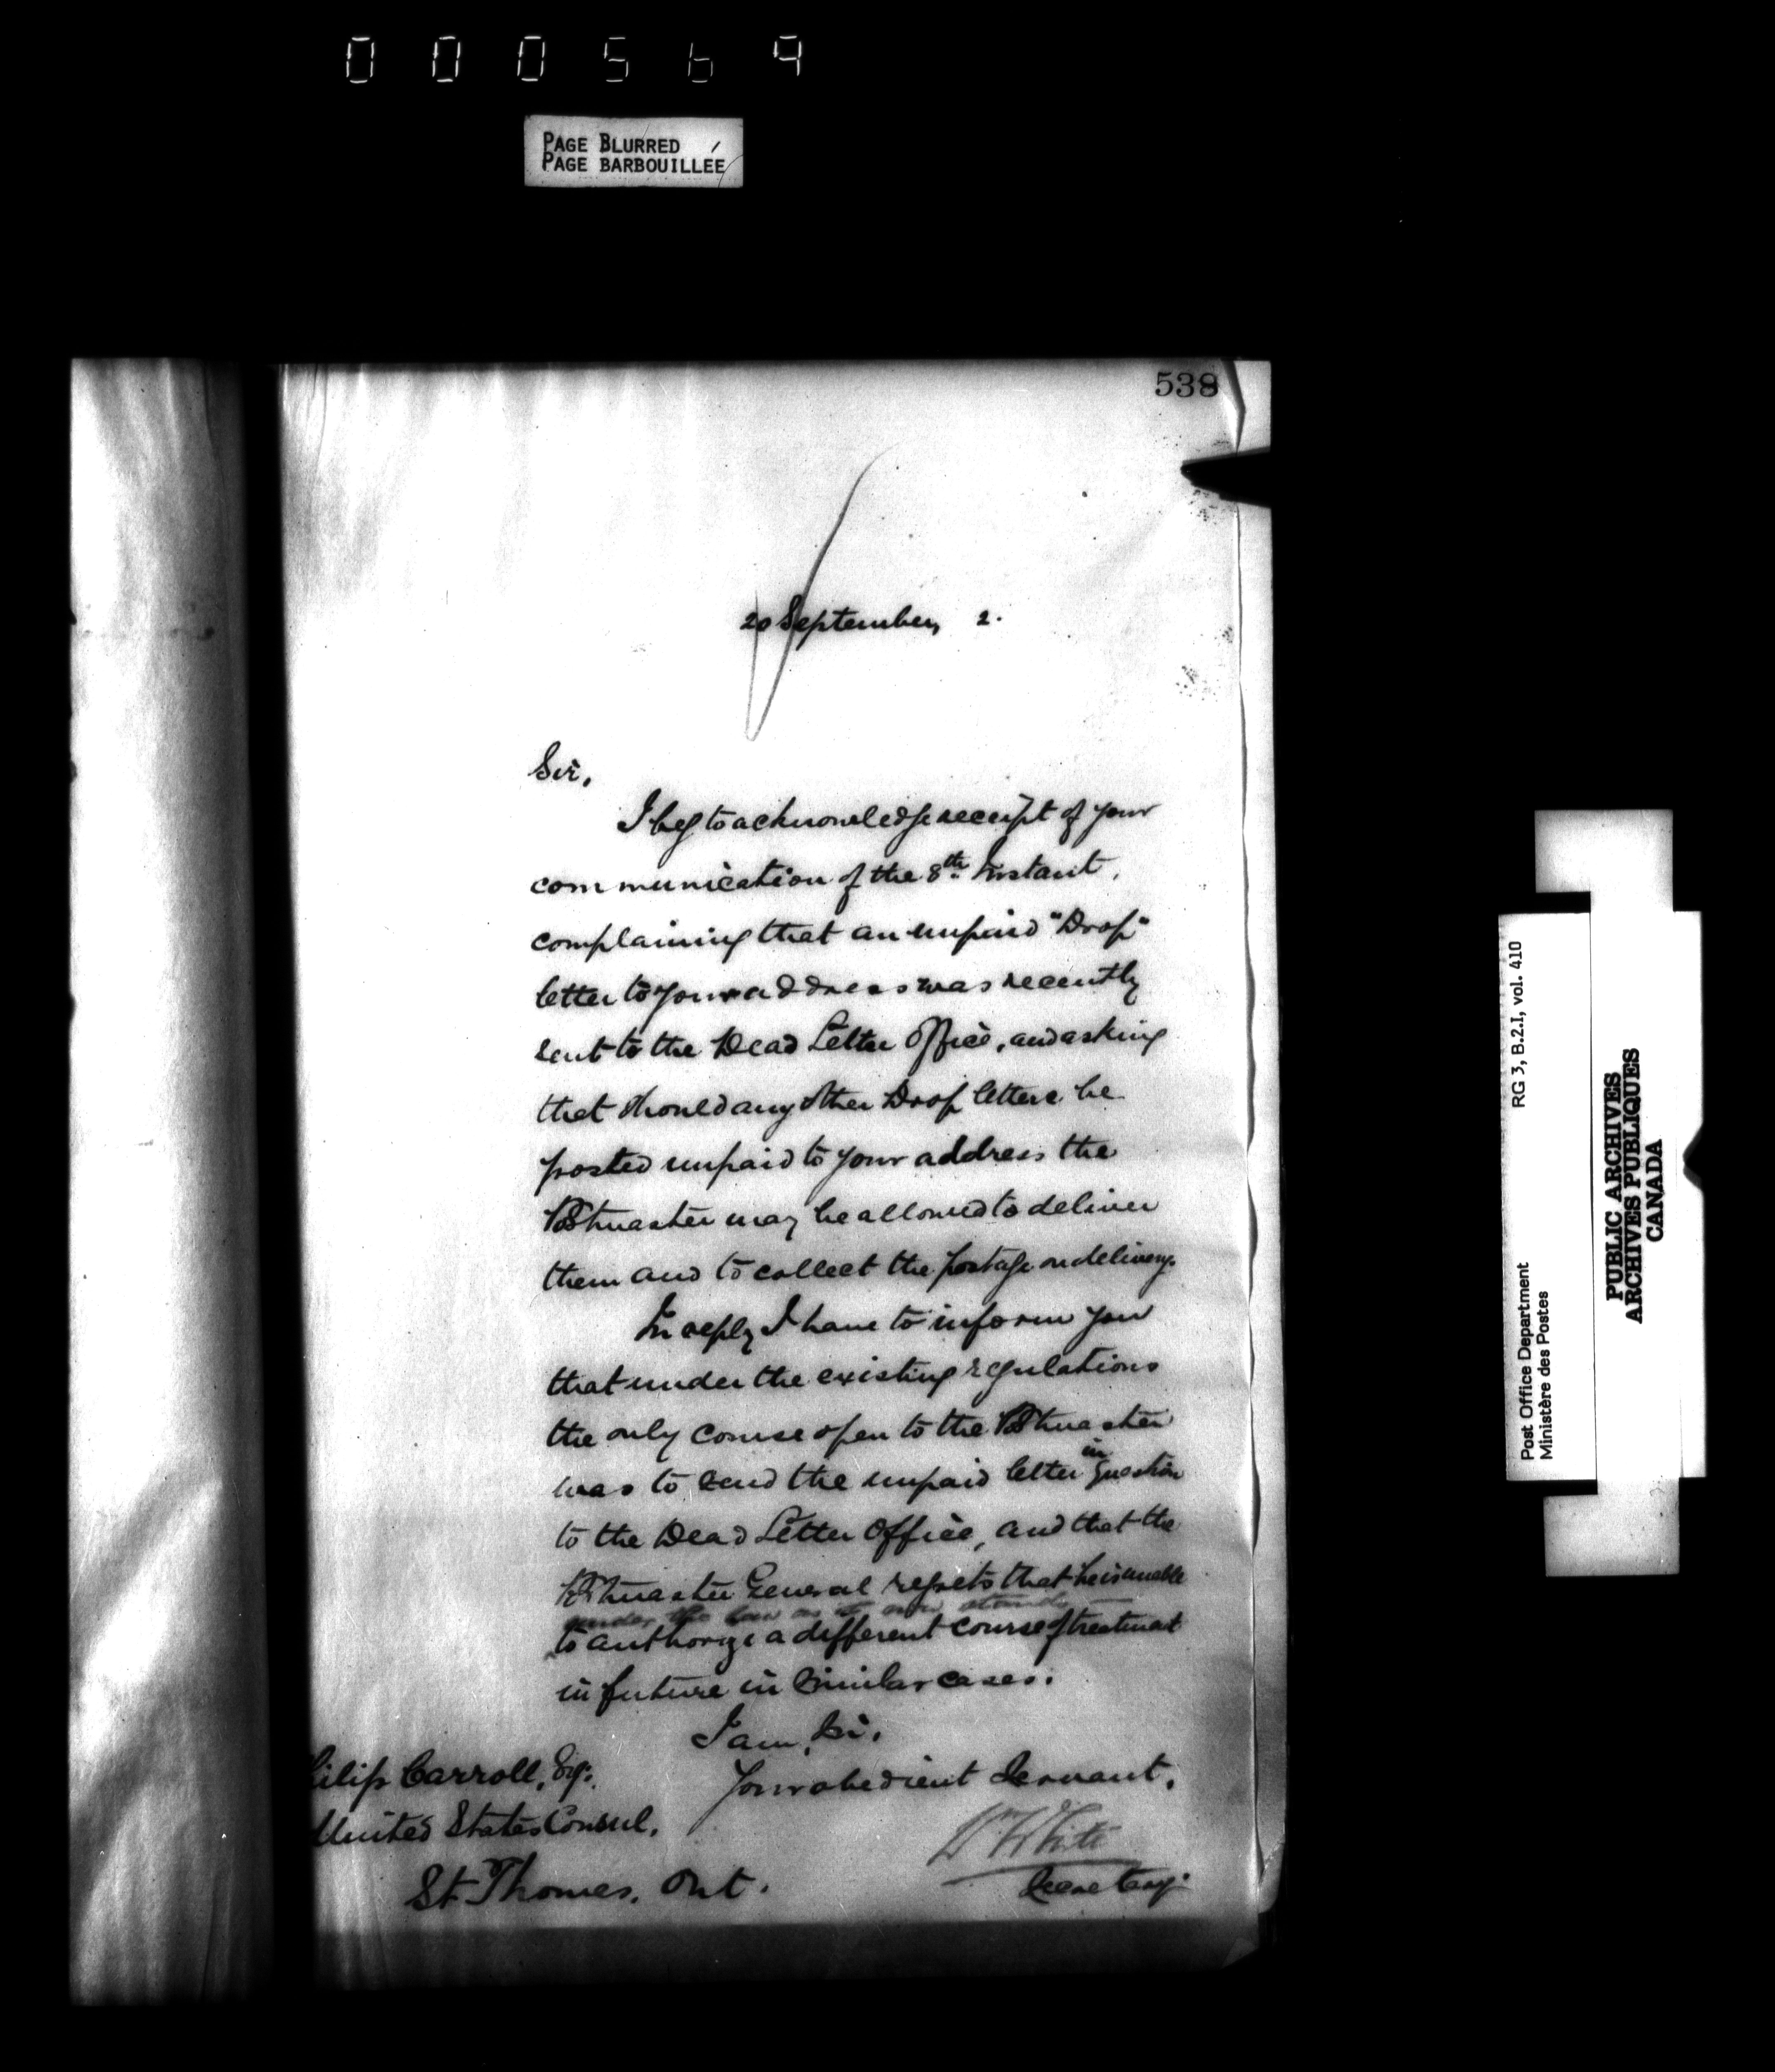 000569
PAGE BLURRED
PAGE BARBOUILLÉE
538
20 September, 2.
Sir,
I beg to acknowledge receipt of your
communication of the 8th Instant,
complaining that an unpaid "Drop"
letter to your address was recently
sent to the Dead Letter Office, and asking
that should any other Drop letters be
posted unpaid to your address the
Postmaster may be allowed to deliver
them and to collect the postage on delivery.
In reply I have to inform you
that under the existing regulations
the only course open to the Postmaster
in
was to send the unpaid letter question
to the Dead Letter Office, and that the
Postmaster General regrets that he is unable
under the law as it now stands
to authorize a different course of treatment
in future in similar cases.
I am, Sir,
Your obedient Servant,
W White
Secretary.
hilip Carroll, Esq:.
United States Consul,
St. Thomas, Ont.
Post Office Department
Ministère des Postes
RG 3, B.2.I, vol. 410
PUBLIC ARCHIVES
ARCHIVES PUBLIQUES
CANADA